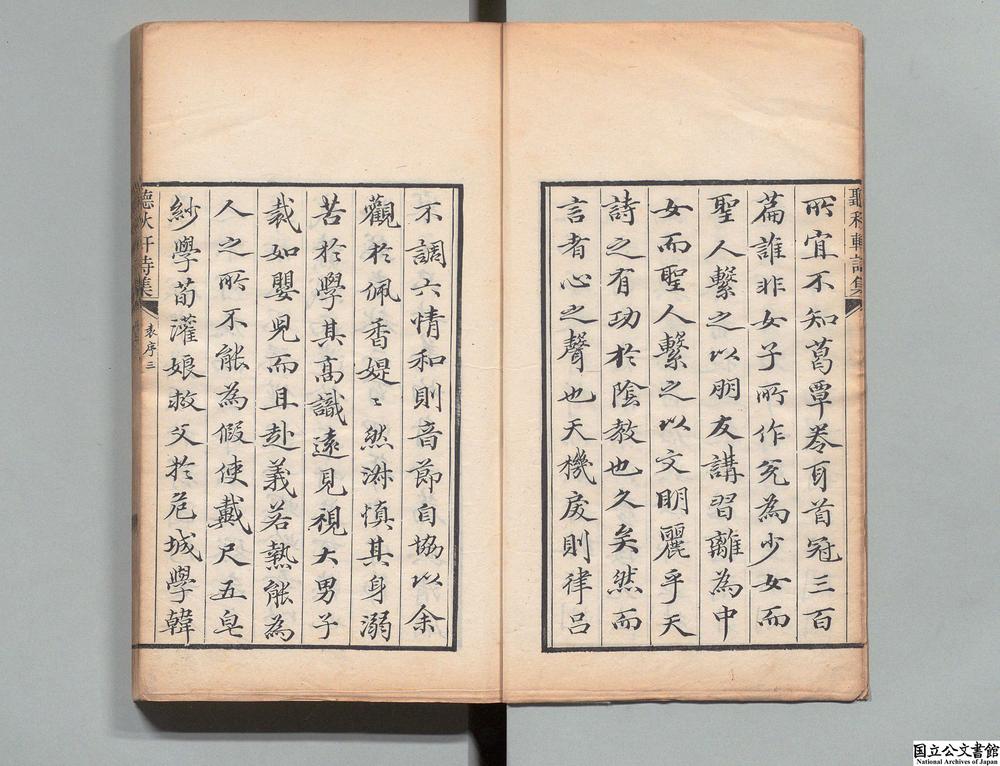 聽秋軒詩集
所宜不知葛覃卷耳首冠三百
篇誰非女子所作兊為少女而
聖人繫之以朋友講習離為中
女而聖人繫之以文明麗乎天
詩之有功於陰教也久矣然而
言者心之聲也天機戾則律呂
不調六情和則音節自協以余
觀於佩香媞〻然淋慎其身溺
苦於學其高識遠見視大男子
裁如嬰児而且赴義若熱能為
人之所不能為假使戴尺五皂
紗學荀灌娘救父於危城學韓
聽秋軒詩集
袁序三
国立公文書館
National Archives of Japan